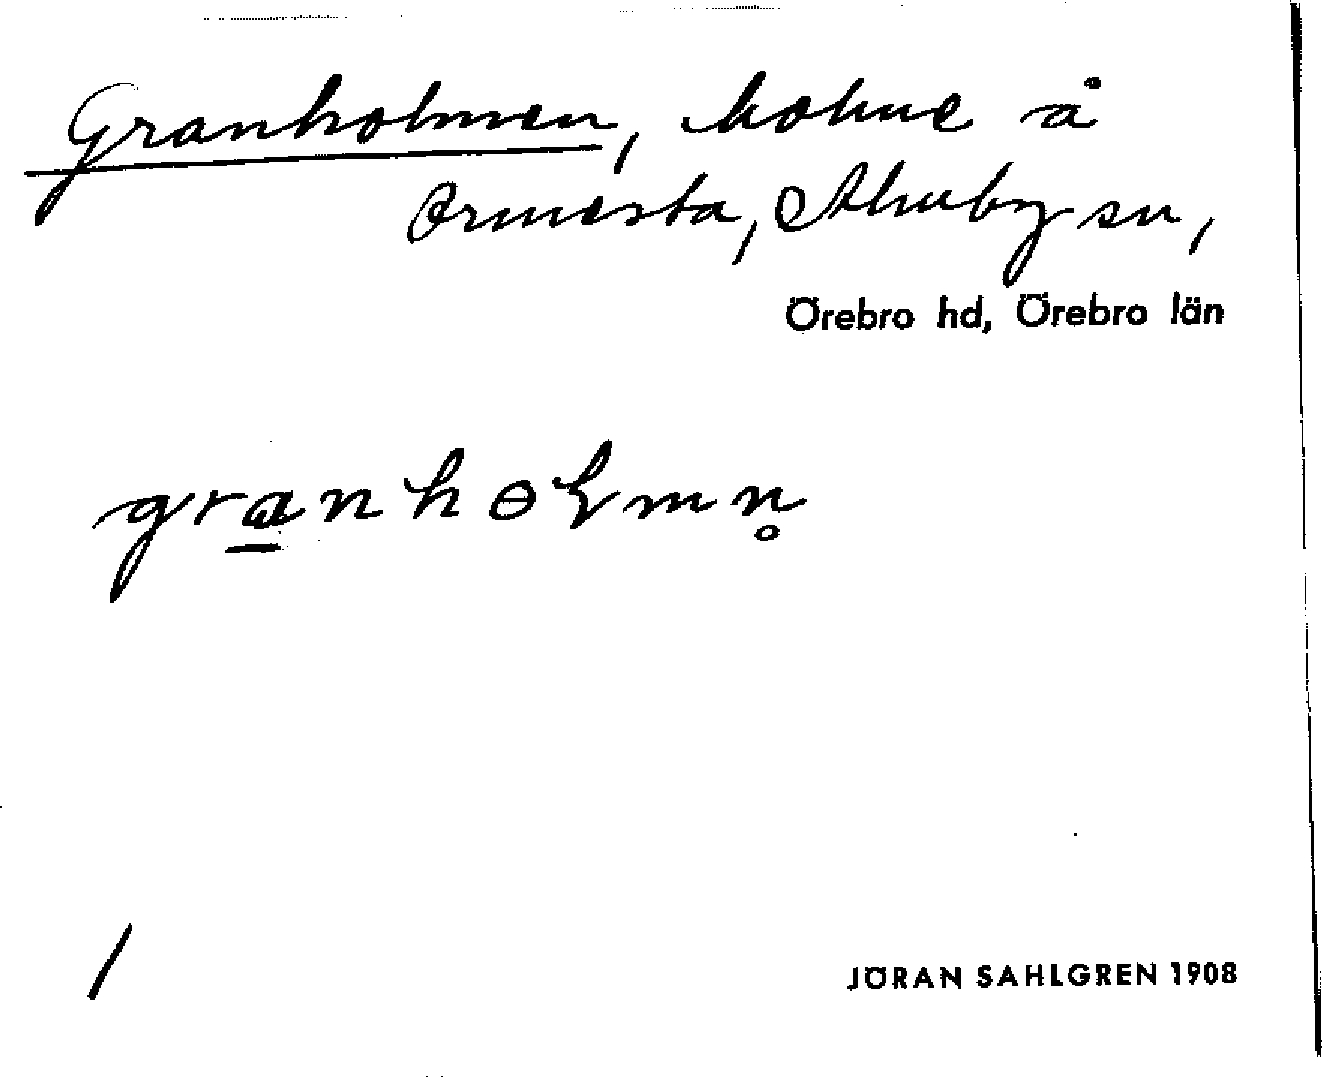 Granholmen, holme å
Ormesta, Almby sn,
Örebro hd, Örebro län
granholmn̥
/
JÖRAN SAHLGREN 1908